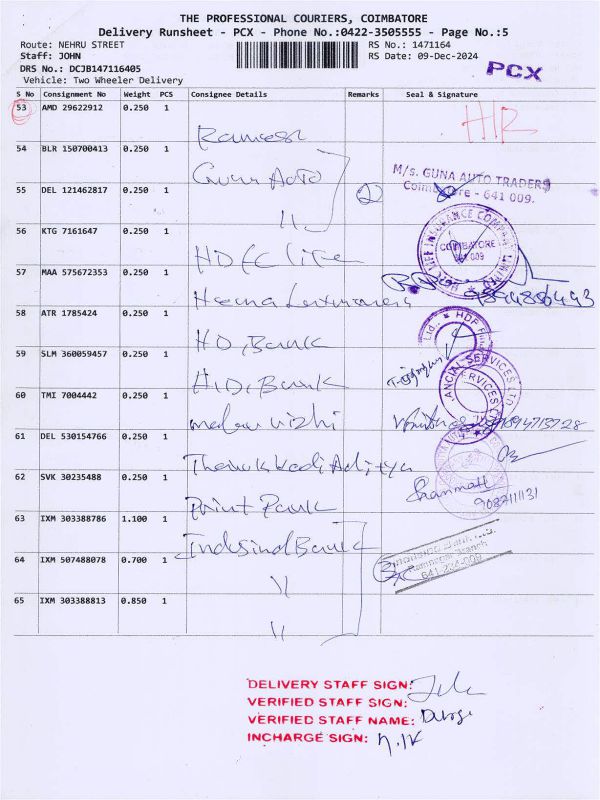 THE PROFESSIONAL COURIERS, COIMBATORE
Delivery Runsheet - PCX - Phone No.:0422-3505555 - Page No.:5
Route: NEHRU STREET
RS No.: 1471164
Staff: JOHN
RS Date: 09-Dec-2024
DRS No.: DCJB147116405
Vehicle: Two Wheeler Delivery
PCX
S No Consignment No Weight PCS Consignee Details Remarks Seal & Signature
53 AMD 29622912 0.250 1
HR
Ramesh
54 BLR 150700413 0.250 1
Guna Auto
M/s. GUNA AUTO TRADERS
Coimbatore - 641 009.
55 DEL 121462817 0.250 1
2
"
56 KTG 7161647 0.250 1
HDFC LIFE INSURANCE COMPANY LIMITED
COIMBATORE
641 009
HDFC Life
57 MAA 575672353 0.250 1
58 ATR 1785424 0.250 1
HD, Bank
59 SLM 360059457 0.250 1
FINANCIAL SERVICES LTD
H.D, Bank
60 TMI 7004442 0.250 1
61 DEL 530154766 0.250 1
62 SVK 30235488 0.250 1
9087111131
63 IXM 303388786 1.100 1
Indusind Bank
64 IXM 507488078 0.700 1
"
65 IXM 303388813 0.850 1
"
DELIVERY STAFF SIGN:
VERIFIED STAFF SIGN:
VERIFIED STAFF NAME:
INCHARGE SIGN: